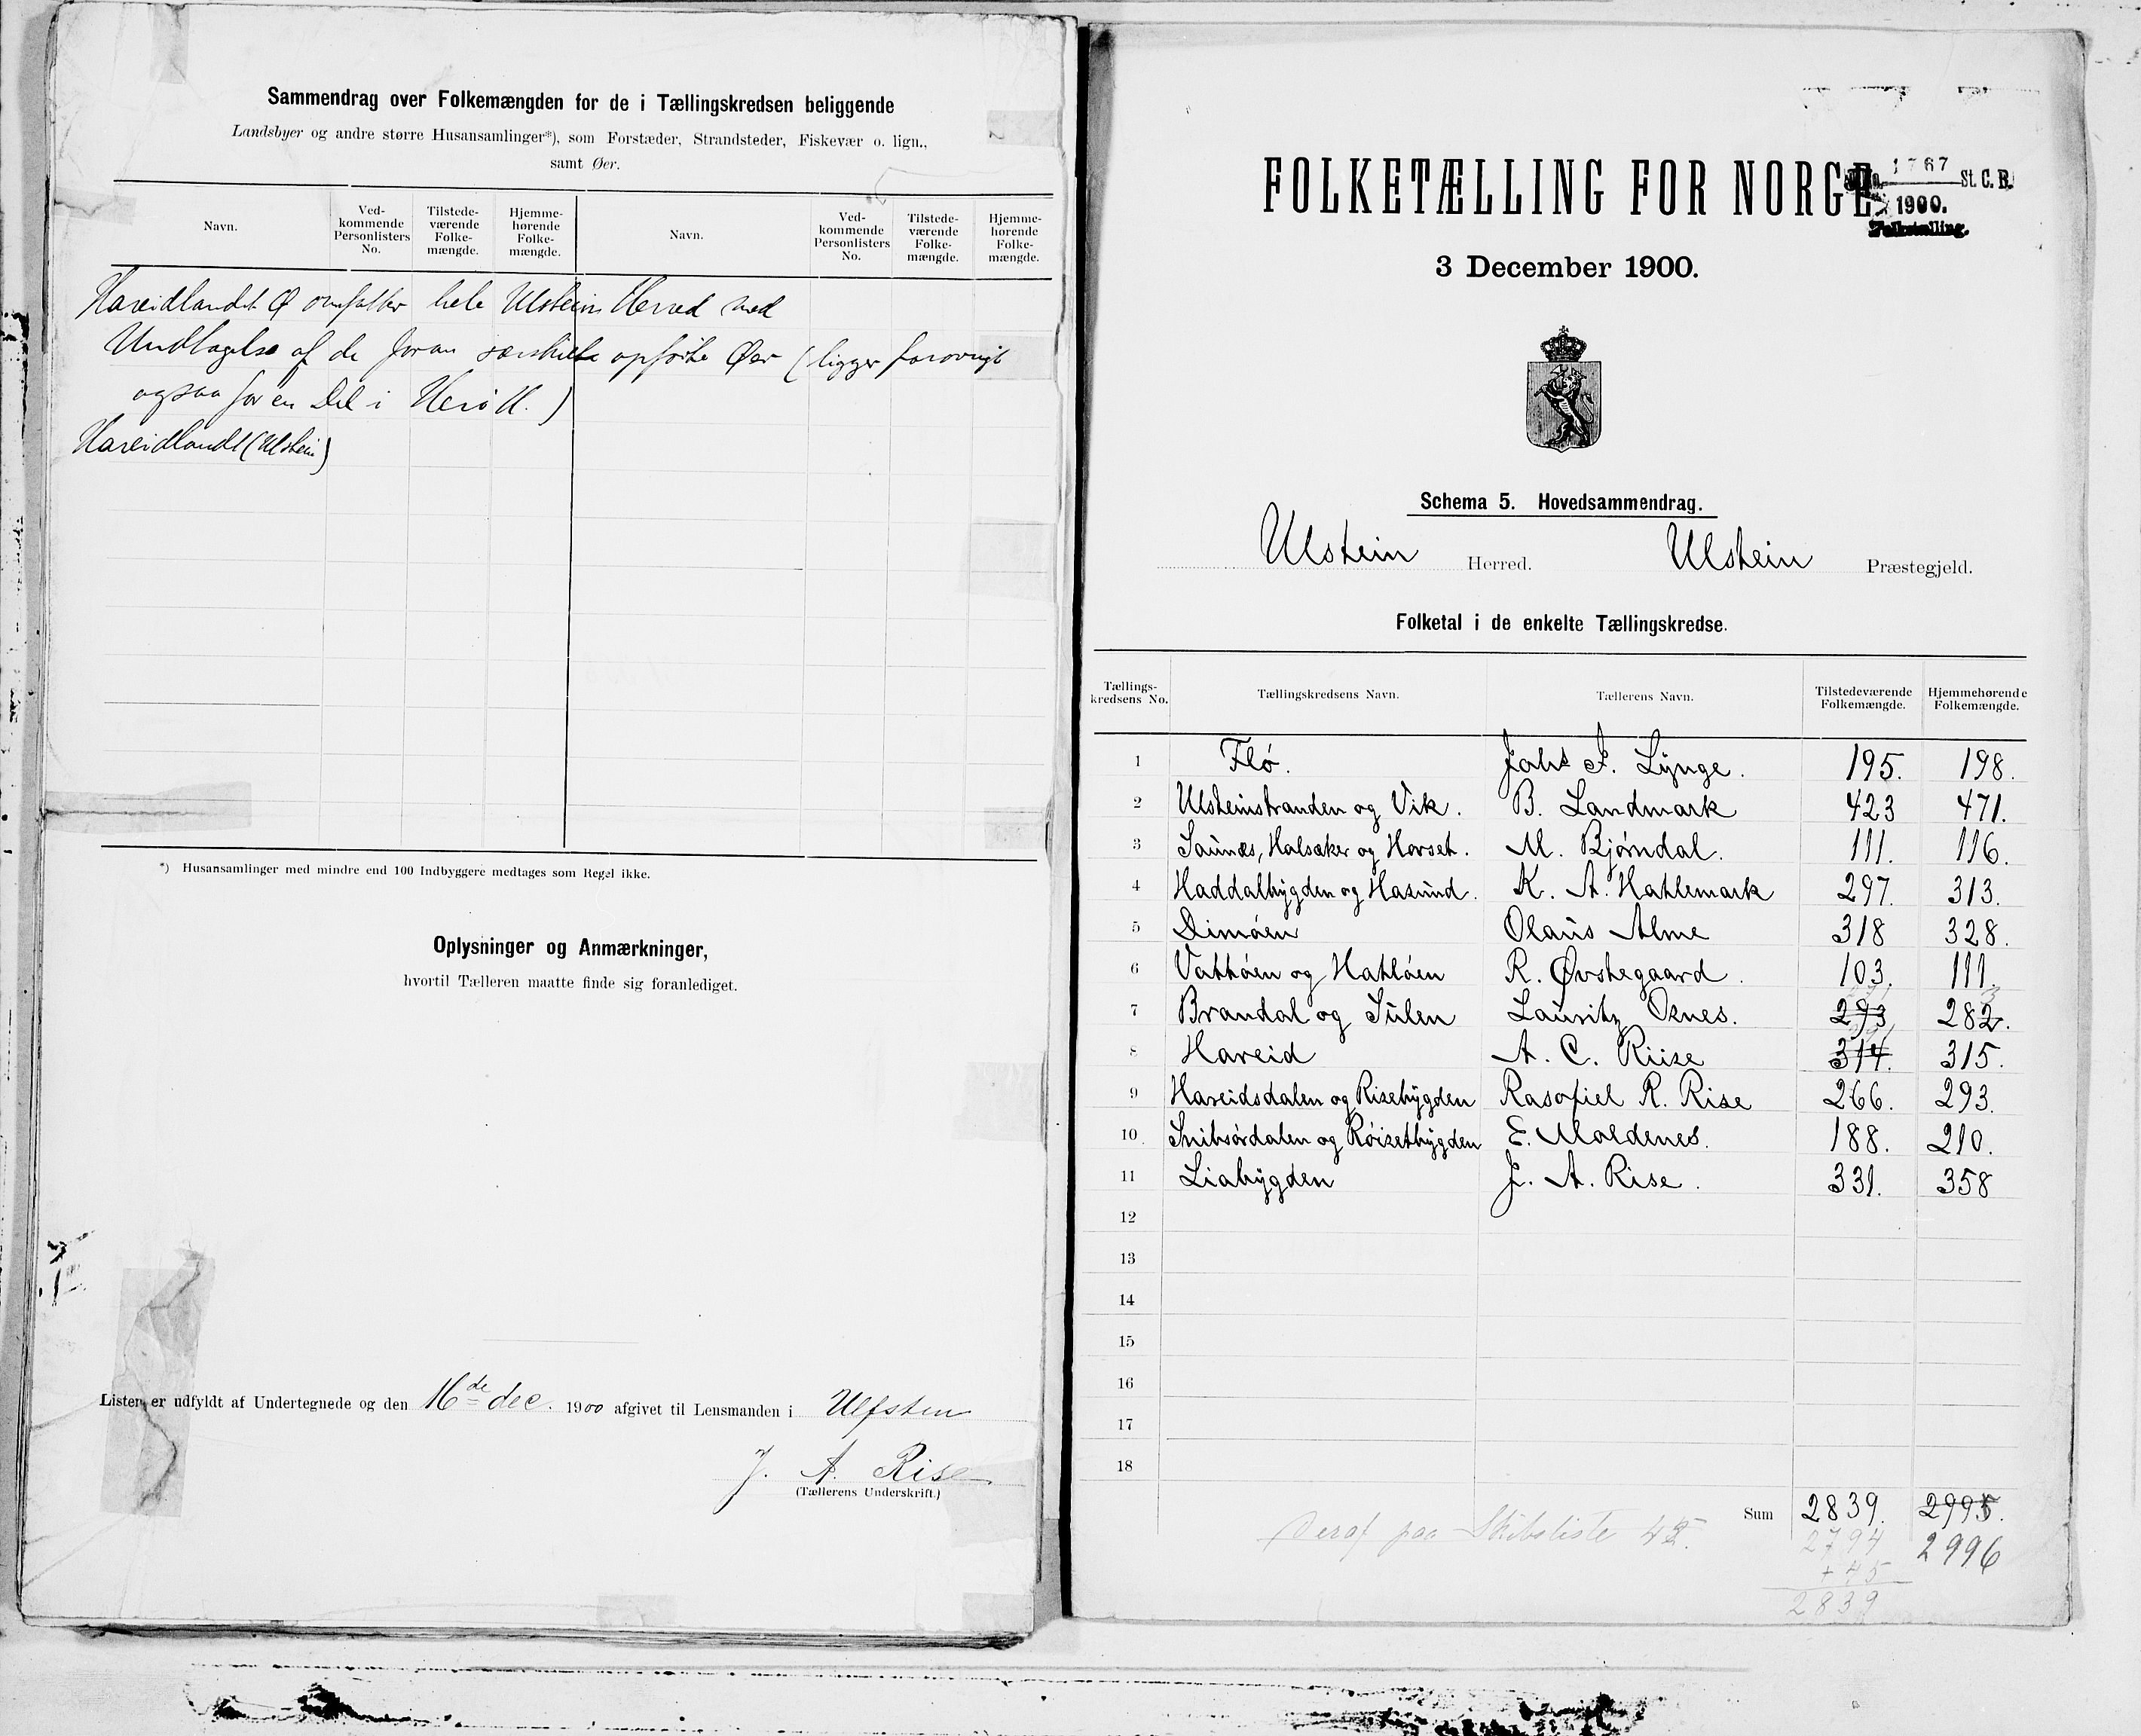 Sammendrag over Folkemængden for de i Tællingskredsen beliggende
Landsbyer og andre større Husansamlinger*), som Forstæder, Strandsteder, Fiskevær o. lign.,
samt Øer.
Navn. Ved-kommende Personlisters No. Tilstede-værende Folke-mængde. Hjemme-hørende Folke-mængde. Navn. Ved-kommende Personlisters No. Tilstede-værende Folke-mængde. Hjemme-hørende Folke-mængde.
Hareidlandet Ø omfatter hele Ulstein Herred med
Undtagelse af de foran særskilt opførte Øer (ligger forøvrigt
ogsaa for en Del i Herö H.)
Hareidlandt (Ulstein)
*) Husansamlinger med mindre end 100 Indbyggere medtages som Regel ikke.
Oplysninger og Anmærkninger,
hvortil Tælleren maatte finde sig foranlediget.
Listen er udfyldt af Undertegnede og den 16de dec. 1900 afgivet til Lensmanden i Ulfsten
J. A. Rise
(Tællerens Underskrift.)
FOLKETÆLLING FOR NORGE
1767 St. C. B.
1900.
Folketælling.
3 December 1900.
Schema 5. Hovedsammendrag.
Ulstein Herred. Ulstein Præstegjeld.
Folketal i de enkelte Tællingskredse.
Tællings-kredsens No. Tællingskredsens Navn. Tællerens Navn. Tilstedeværende Folkemængde. Hjemmehørende Folkemængde.
1 Flö. Johs J. Lynge. 195. 198.
2 Ulsteinstranden og Vik. B. Landmark 423 471.
3 Saunæs, Halsæker og Hovset. M. Bjørndal. 111. 116.
4 Haddalbygden og Hasund. K. A. Hatlemark 297. 313.
5 Dimöen Olaus Alme 318 328.
6 Vattöen og Hatlöen R. Øvstegaard. 103. 111.
7 Brandal og Sulen Lauritz Oxnes. 293 282.
8 Hareid A. C. Riise 314. 315.
9 Hareidsdalen og Risebygden Rasofiel R. Rise 266. 293.
10. Snibsördalen og Röisetbygden E. Moldenes. 188. 210.
11 Liabygden J. A. Rise. 331. 358
12
13
14
15
16
17
18
Sum 2839. 2995.
Deraf paa Skibsliste 45. 2794 2996
+ 45
2839